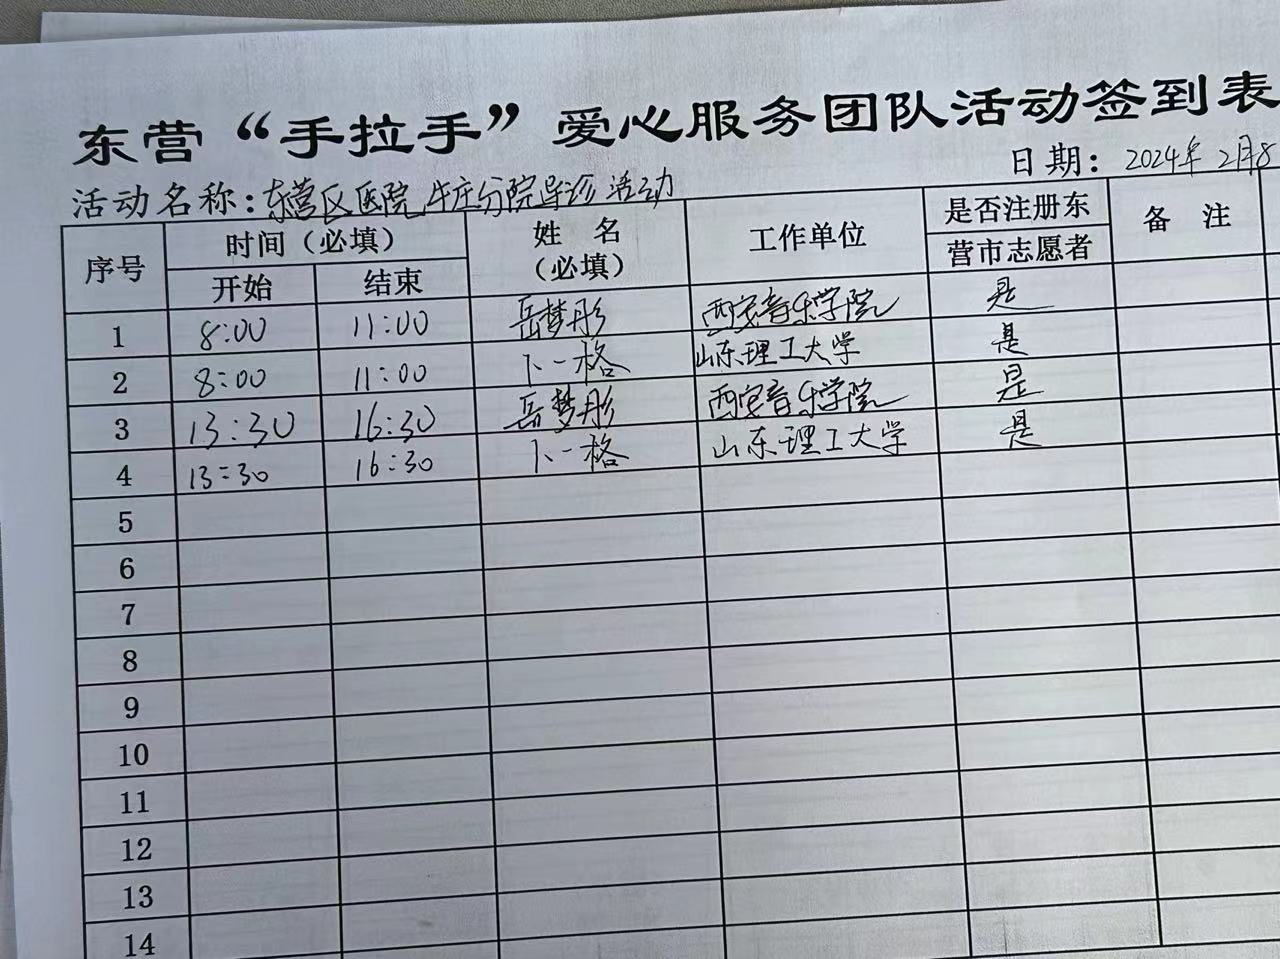 东营“手拉手”爱心服务团队活动签到表
日期：2024年2月8
活动名称：东营区医院牛庄分院导诊活动
序号 时间（必填） 姓名（必填） 工作单位 是否注册东营市志愿者 备注
开始 结束
1 8:00 11:00 岳梦彤 西安音乐学院 是
2 8:00 11:00 卞一格 山东理工大学 是
3 13:30 16:30 岳梦彤 西安音乐学院 是
4 13:30 16:30 卞一格 山东理工大学 是
5
6
7
8
9
10
11
12
13
14